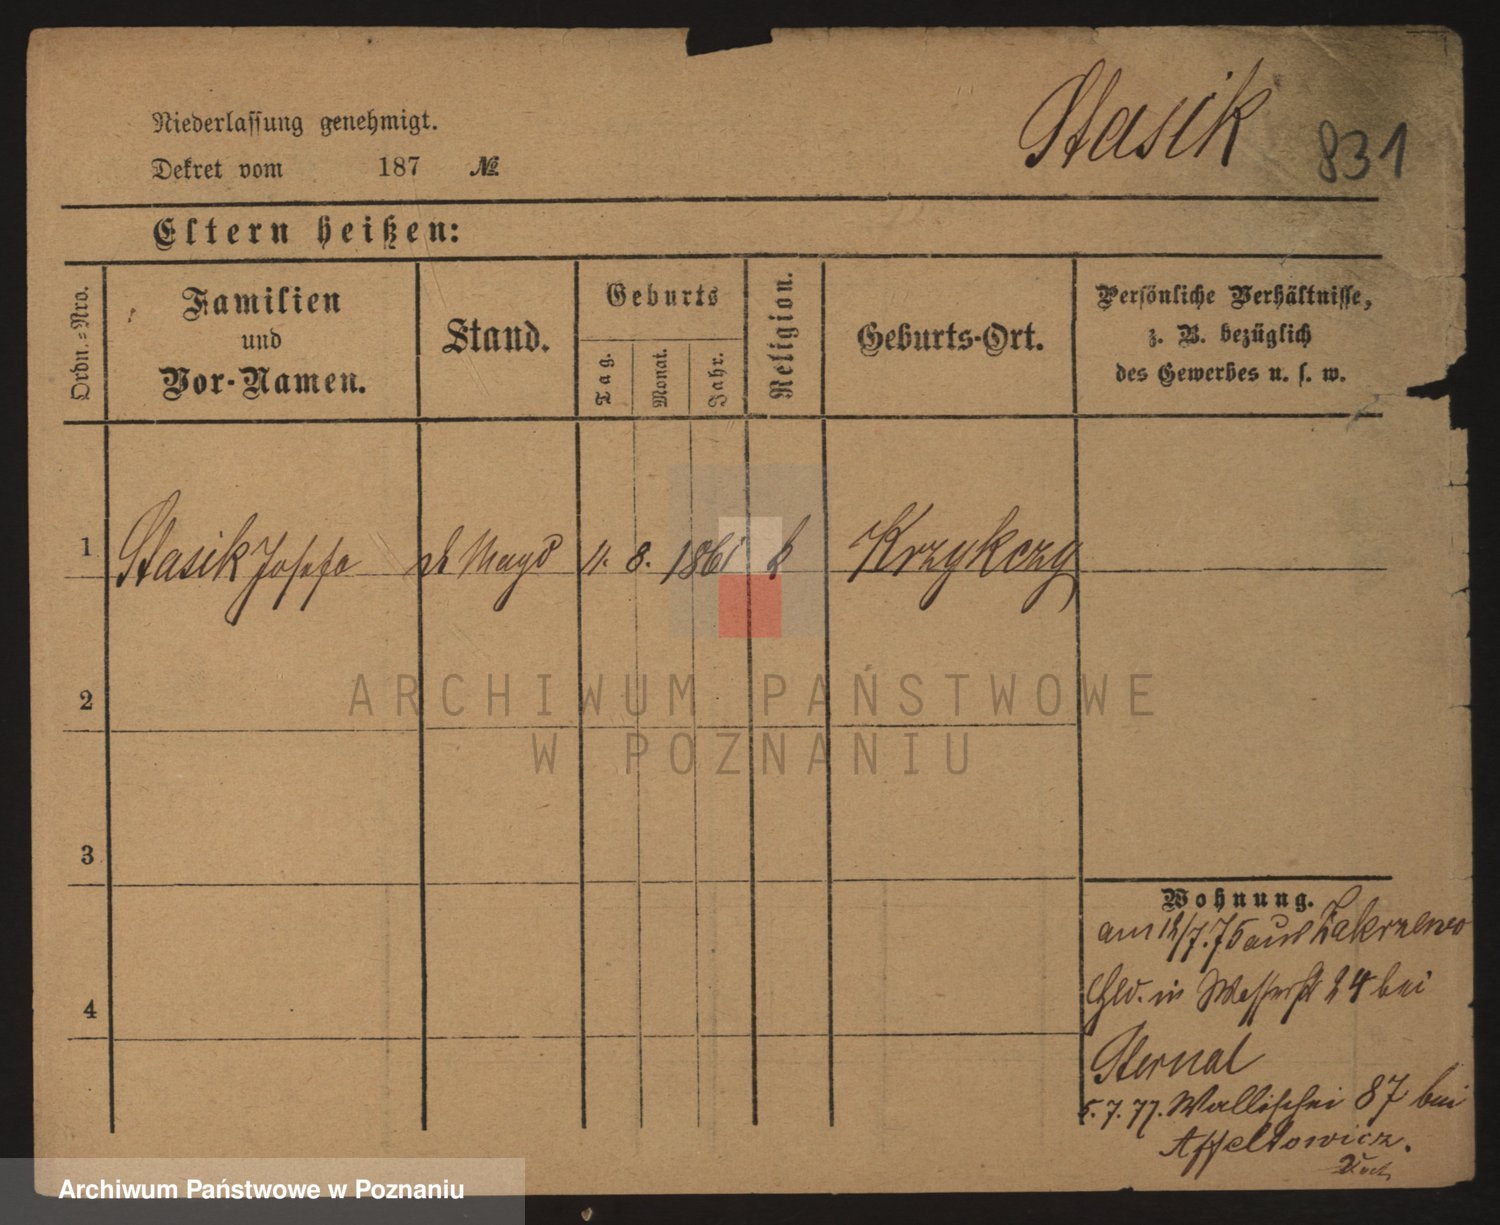 Stasik 831
Niederlassung genehmigt.
Dekret vom 187 №
Eltern heißen:
Ordn.-Nro.
Familien
und
Vor-Namen.
Stand.
Geburts
Tag.
Monat.
Jahr.
Religion.
Geburts-Ort.
Persönliche Verhältnisse,
z. B. bezüglich
des Gewerbes u. s. w.
1 Stasik Josefa Magd 11. 8. 1861 k Krzykczy
2
ARCHIWUM PAŃSTWOWE
W POZNANIU
3
4
Wohnung.
am 12/7.75 aus Zakrzewo
in Wasserst 24 bei
Sternal
5.7.77. Wallischei 87 bei
Affeltowicz.
Archiwum Państwowe w Poznaniu